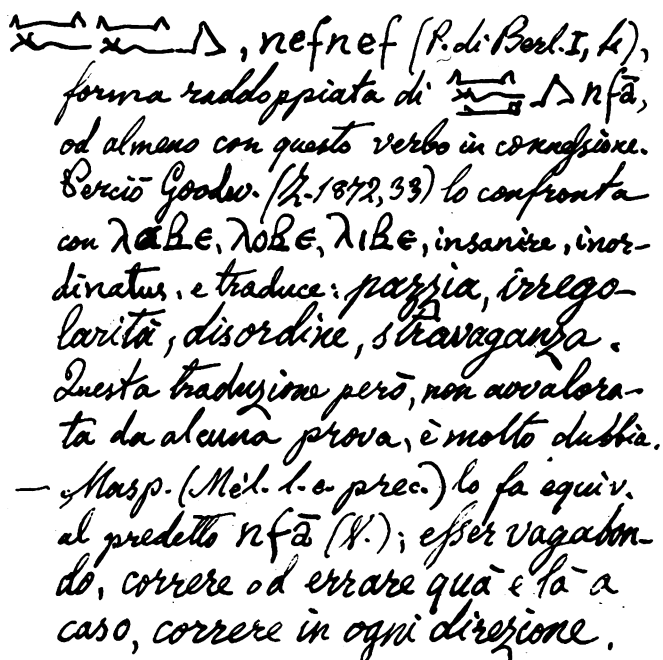 𓈖𓆑𓈖𓆑𓂻, nefnef (P. di Berl. I, k),
forma raddoppiata di 𓈖𓆑𓂻 nfā,
od almeno con questo verbo in connessione.
Perciò Goodw. (Z. 1872, 33) lo confronta
con ⲗⲁⲃⲉ, ⲗⲟⲃⲉ, ⲗⲓⲃⲉ, insanire, inor-
dinatus, e traduce: pazzia, irrego-
larità, disordine, stravaganza.
Questa traduzione però, non avvalora-
ta da alcuna prova, è molto dubbia.
— Masp. (Mél. l. c. prec.) lo fa equiv.
al predetto nfā (V.); esser vagabon-
do, correre od errare quà e là a
caso, correre in ogni direzione.